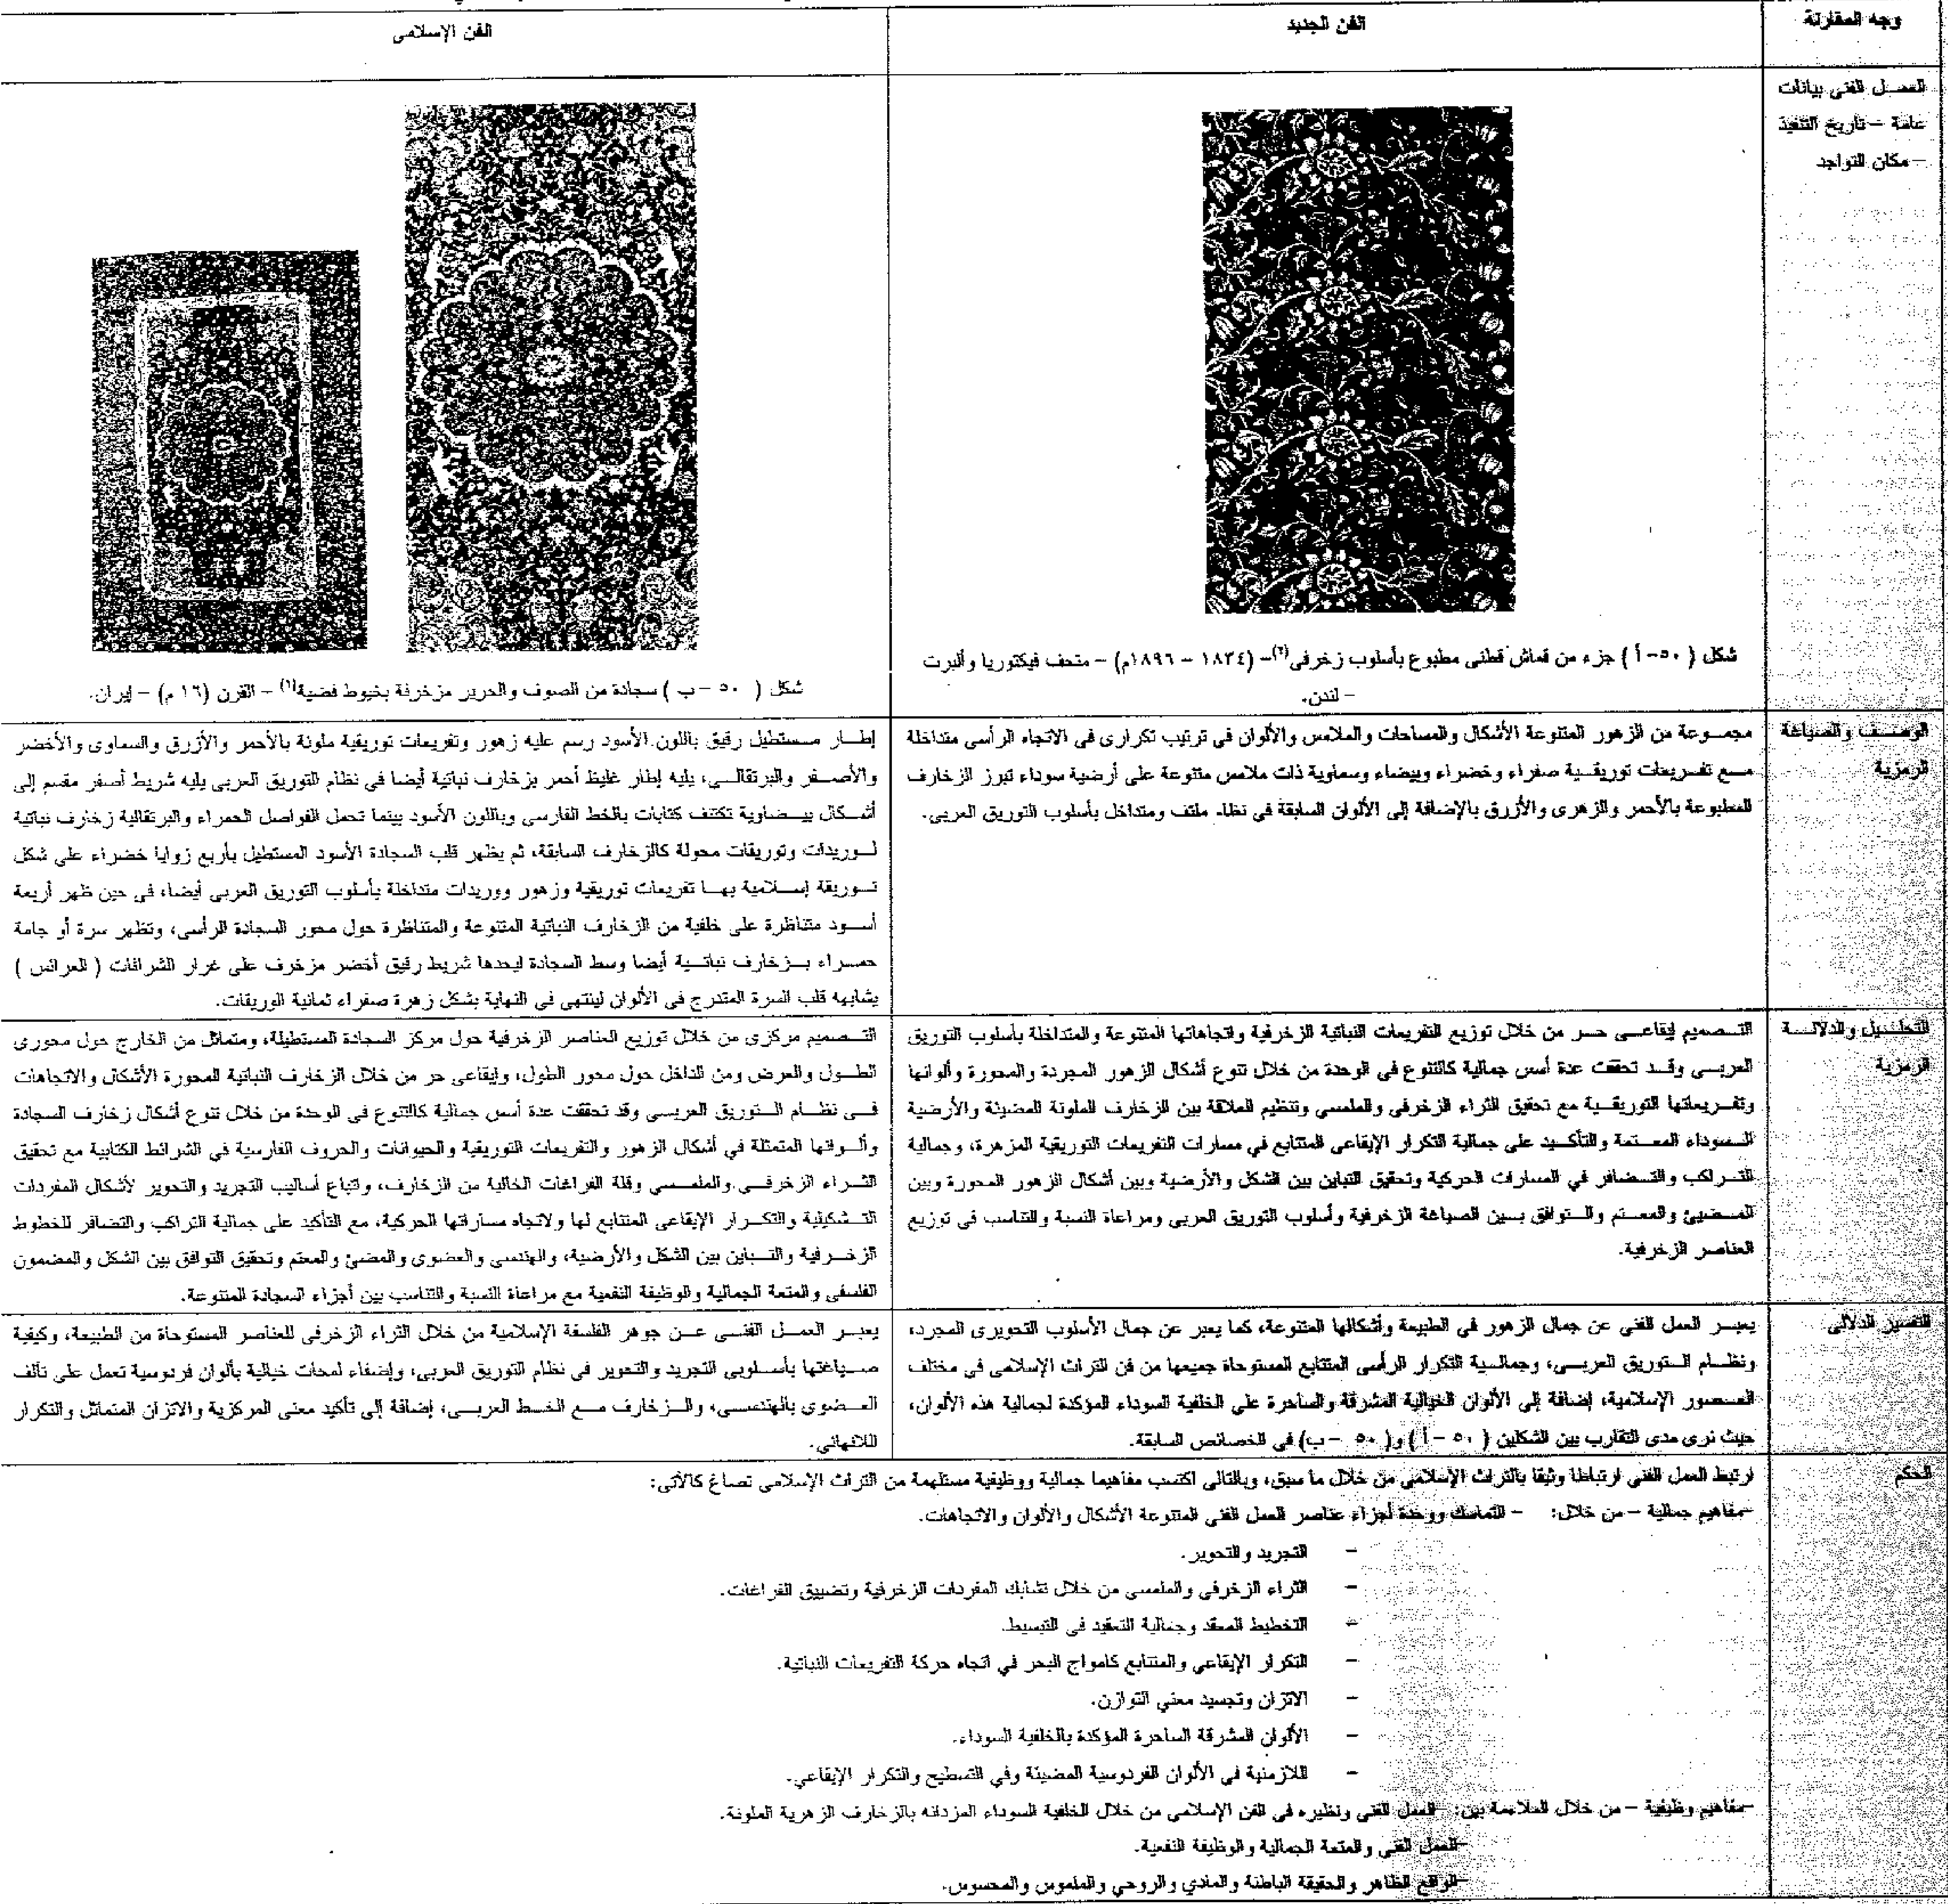 وجه المقارنة
الفن الجديد
الفن الإسلامى
العمــل الفنى بيانات
عامة – تاريخ التنفيذ
– مكان التواجد
شكل ( ٥٠- أ ) جزء من قماش قطنى مطبوع بأسلوب زخرفى(٢)– (١٨٣٤ – ١٨٩٦م) – متحف فيكتوريا وألبرت
– لندن.
شكل ( ٥٠ – ب ) سجادة من الصوف والحرير مزخرفة بخيوط فضية(١) – القرن (١٦ م) – إيران.
الوصــف والصياغة
الرمزية
مجمــوعة من الزهور المتنوعة الأشكال والمساحات والملامس والألوان في ترتيب تكرارى فى الاتجاه الرأسى متداخلة
مــع تفــريعات توريقــية صفراء وخضراء وبيضاء وسماوية ذات ملامس متنوعة على أرضية سوداء تبرز الزخارف
المطبوعة بالأحمر والزهرى والأزرق بالإضافة إلى الألوان السابقة فى نظام ملتف ومتداخل بأسلوب التوريق العربى.
إطــار مــستطيل رقيق باللون الأسود رسم عليه زهور وتفريعات توريقية ملونة بالأحمر والأزرق والسماوى والأخضر
والأصــفر والبرتقالــي، يليه إطار غليظ أحمر بزخارف نباتية أيضا في نظام التوريق العربى يليه شريط أصفر مقسم إلى
أشــكال بيــضاوية تكتنف كتابات بالخط الفارسى وباللون الأسود بينما تحمل الفواصل الحمراء والبرتقالية زخارف نباتية
لــوريدات وتوريقات محولة كالزخارف السابقة، ثم يظهر قلب السجادة الأسود المستطيل بأربع زوايا خضراء على شكل
تــوريقة إســلامية بهــا تفريعات توريقية وزهور ووريدات متداخلة بأسلوب التوريق العربي أيضا، فى حين ظهر أربعة
أســود متناظرة على خلفية من الزخارف النباتية المتنوعة والمتناظرة حول محور السجادة الرأسى، وتظهر سرة أو جامة
حمــراء بــزخارف نباتــية أيضا وسط السجادة ليحدها شريط رقيق أخضر مزخرف على غرار الشرافات ( العرائس )
يشابهه قلب السرة المتدرج فى الألوان لينتهى فى النهاية بشكل زهرة صفراء ثمانية الوريقات.
التحلــيل والدلالــة
الرمزية
التــصميم إيقاعــى حــر من خلال توزيع التفريعات النباتية الزخرفية واتجاهاتها المتنوعة والمتداخلة بأسلوب التوريق
العربــى وقــد تحققت عدة أسس جمالية كالتنوع فى الوحدة من خلال تنوع أشكال الزهور المجردة والمحورة وألوانها
وتفــريعاتها التوريقــية مع تحقيق الثراء الزخرفى والملمسي وتنظيم العلاقة بين الزخارف الملونة المضيئة والأرضية
الــسوداء المعــتمة والتأكــيد على جمالية التكرار الإيقاعى المتتابع في مسارات التفريعات التوريقية المزهرة، وجمالية
التــراكب والتــضافر في المسارات الحركية وتحقيق التباين بين الشكل والأرضية وبين أشكال الزهور المحورة وبين
المــضيئ والمعــتم والــتوافق بــين الصياغة الزخرفية وأسلوب التوريق العربى ومراعاة النسبة والتناسب فى توزيع
العناصر الزخرفية.
التــصميم مركزى من خلال توزيع العناصر الزخرفية حول مركز السجادة المستطيلة، ومتماثل من الخارج حول محورى
الطــول والعرض ومن الداخل حول محور الطول، وإيقاعى حر من خلال الزخارف النباتية المحورة الأشكال والاتجاهات
فــى نظــام الــتوريق العربــى وقد تحققت عدة أسس جمالية كالتنوع في الوحدة من خلال تنوع أشكال زخارف السجادة
وألــوانها المتمثلة في أشكال الزهور والتفريعات التوريقية والحيوانات والحروف الفارسية في الشرائط الكتابية مع تحقيق
الثــراء الزخرفــي والملمــسي وقلة الفراغات الخالية من الزخارف، واتباع أساليب التجريد والتحوير لأشكال المفردات
التــشكيلية والتكــرار الإيقاعى المتتابع لها ولاتجاه مساراتها الحركية، مع التأكيد على جمالية التراكب والتضافر للخطوط
الزخــرفية والتــباين بين الشكل والأرضية، والهندسى والعضوى والمضئ والمعتم وتحقيق التوافق بين الشكل والمضمون
الفلسفى والمتعة الجمالية والوظيفة النفعية مع مراعاة النسبة والتناسب بين أجزاء السجادة المتنوعة.
التفسير الدلالى
يعبــر العمل الفنى عن جمال الزهور فى الطبيعة وأشكالها المتنوعة، كما يعبر عن جمال الأسلوب التحويرى المجرد،
ونظــام الــتوريق العربــى، وجمالــية التكرار الرأسى المتتابع المستوحاة جميعها من فن التراث الإسلامى في مختلف
العــصور الإسلامية، إضافة إلى الألوان الخيالية المشرقة والساحرة على الخلفية السوداء المؤكدة لجمالية هذه الألوان،
حيث نرى مدى التقارب بين الشكلين ( ٥٠ – أ ) و( ٥٠ – ب) فى الخصائص السابقة.
يعبــر العمــل الفنــى عــن جوهر الفلسفة الإسلامية من خلال الثراء الزخرفى للعناصر المستوحاة من الطبيعة، وكيفية
صــياغتها بأســلوبى التجريد والتحوير فى نظام التوريق العربى، وإضفاء لمحات خيالية بألوان فردوسية تعمل على تآلف
العــضوى بالهندســى، والــزخارف مــع الخــط العربــى، إضافة إلى تأكيد معنى المركزية والاتزان المتماثل والتكرار
اللانهائي.
الحكم
ارتبط العمل الفنى ارتباطا وثيقا بالتراث الإسلامى من خلال ما سبق، وبالتالى اكتسب مفاهيما جمالية ووظيفية مستلهمة من التراث الإسلامى تصاغ كالآتى:
–مفاهيم جمالية – من خلال: – التماسك ووحدة أجزاء عناصر العمل الفنى المتنوعة الأشكال والألوان والاتجاهات.
– التجريد والتحوير.
– الثراء الزخرفى والملمسى من خلال تشابك المفردات الزخرفية وتضييق الفراغات.
– التخطيط المعقد وجمالية التعقيد فى التبسيط.
– التكرار الإيقاعي والمتتابع كامواج البحر في اتجاه حركة التفريعات النباتية.
– الاتزان وتجسيد معني التوازن.
– الألوان المشرقة الساحرة المؤكدة بالخلفية السوداء.
– اللازمنية في الألوان الفردوسية المضيئة وفي التسطيح والتكرار الإيقاعي.
–مفاهيم وظيفية – من خلال الملاءمة بين: –العمل الفني ونظيره في الفن الإسلامي من خلال الخلفية السوداء المزدانه بالزخارف الزهرية الملونة.
–العمل الفني والمتعة الجمالية والوظيفة النفعية.
–الواقع الظاهر والحقيقة الباطنة والمادي والروحي والملموس والمحسوس.